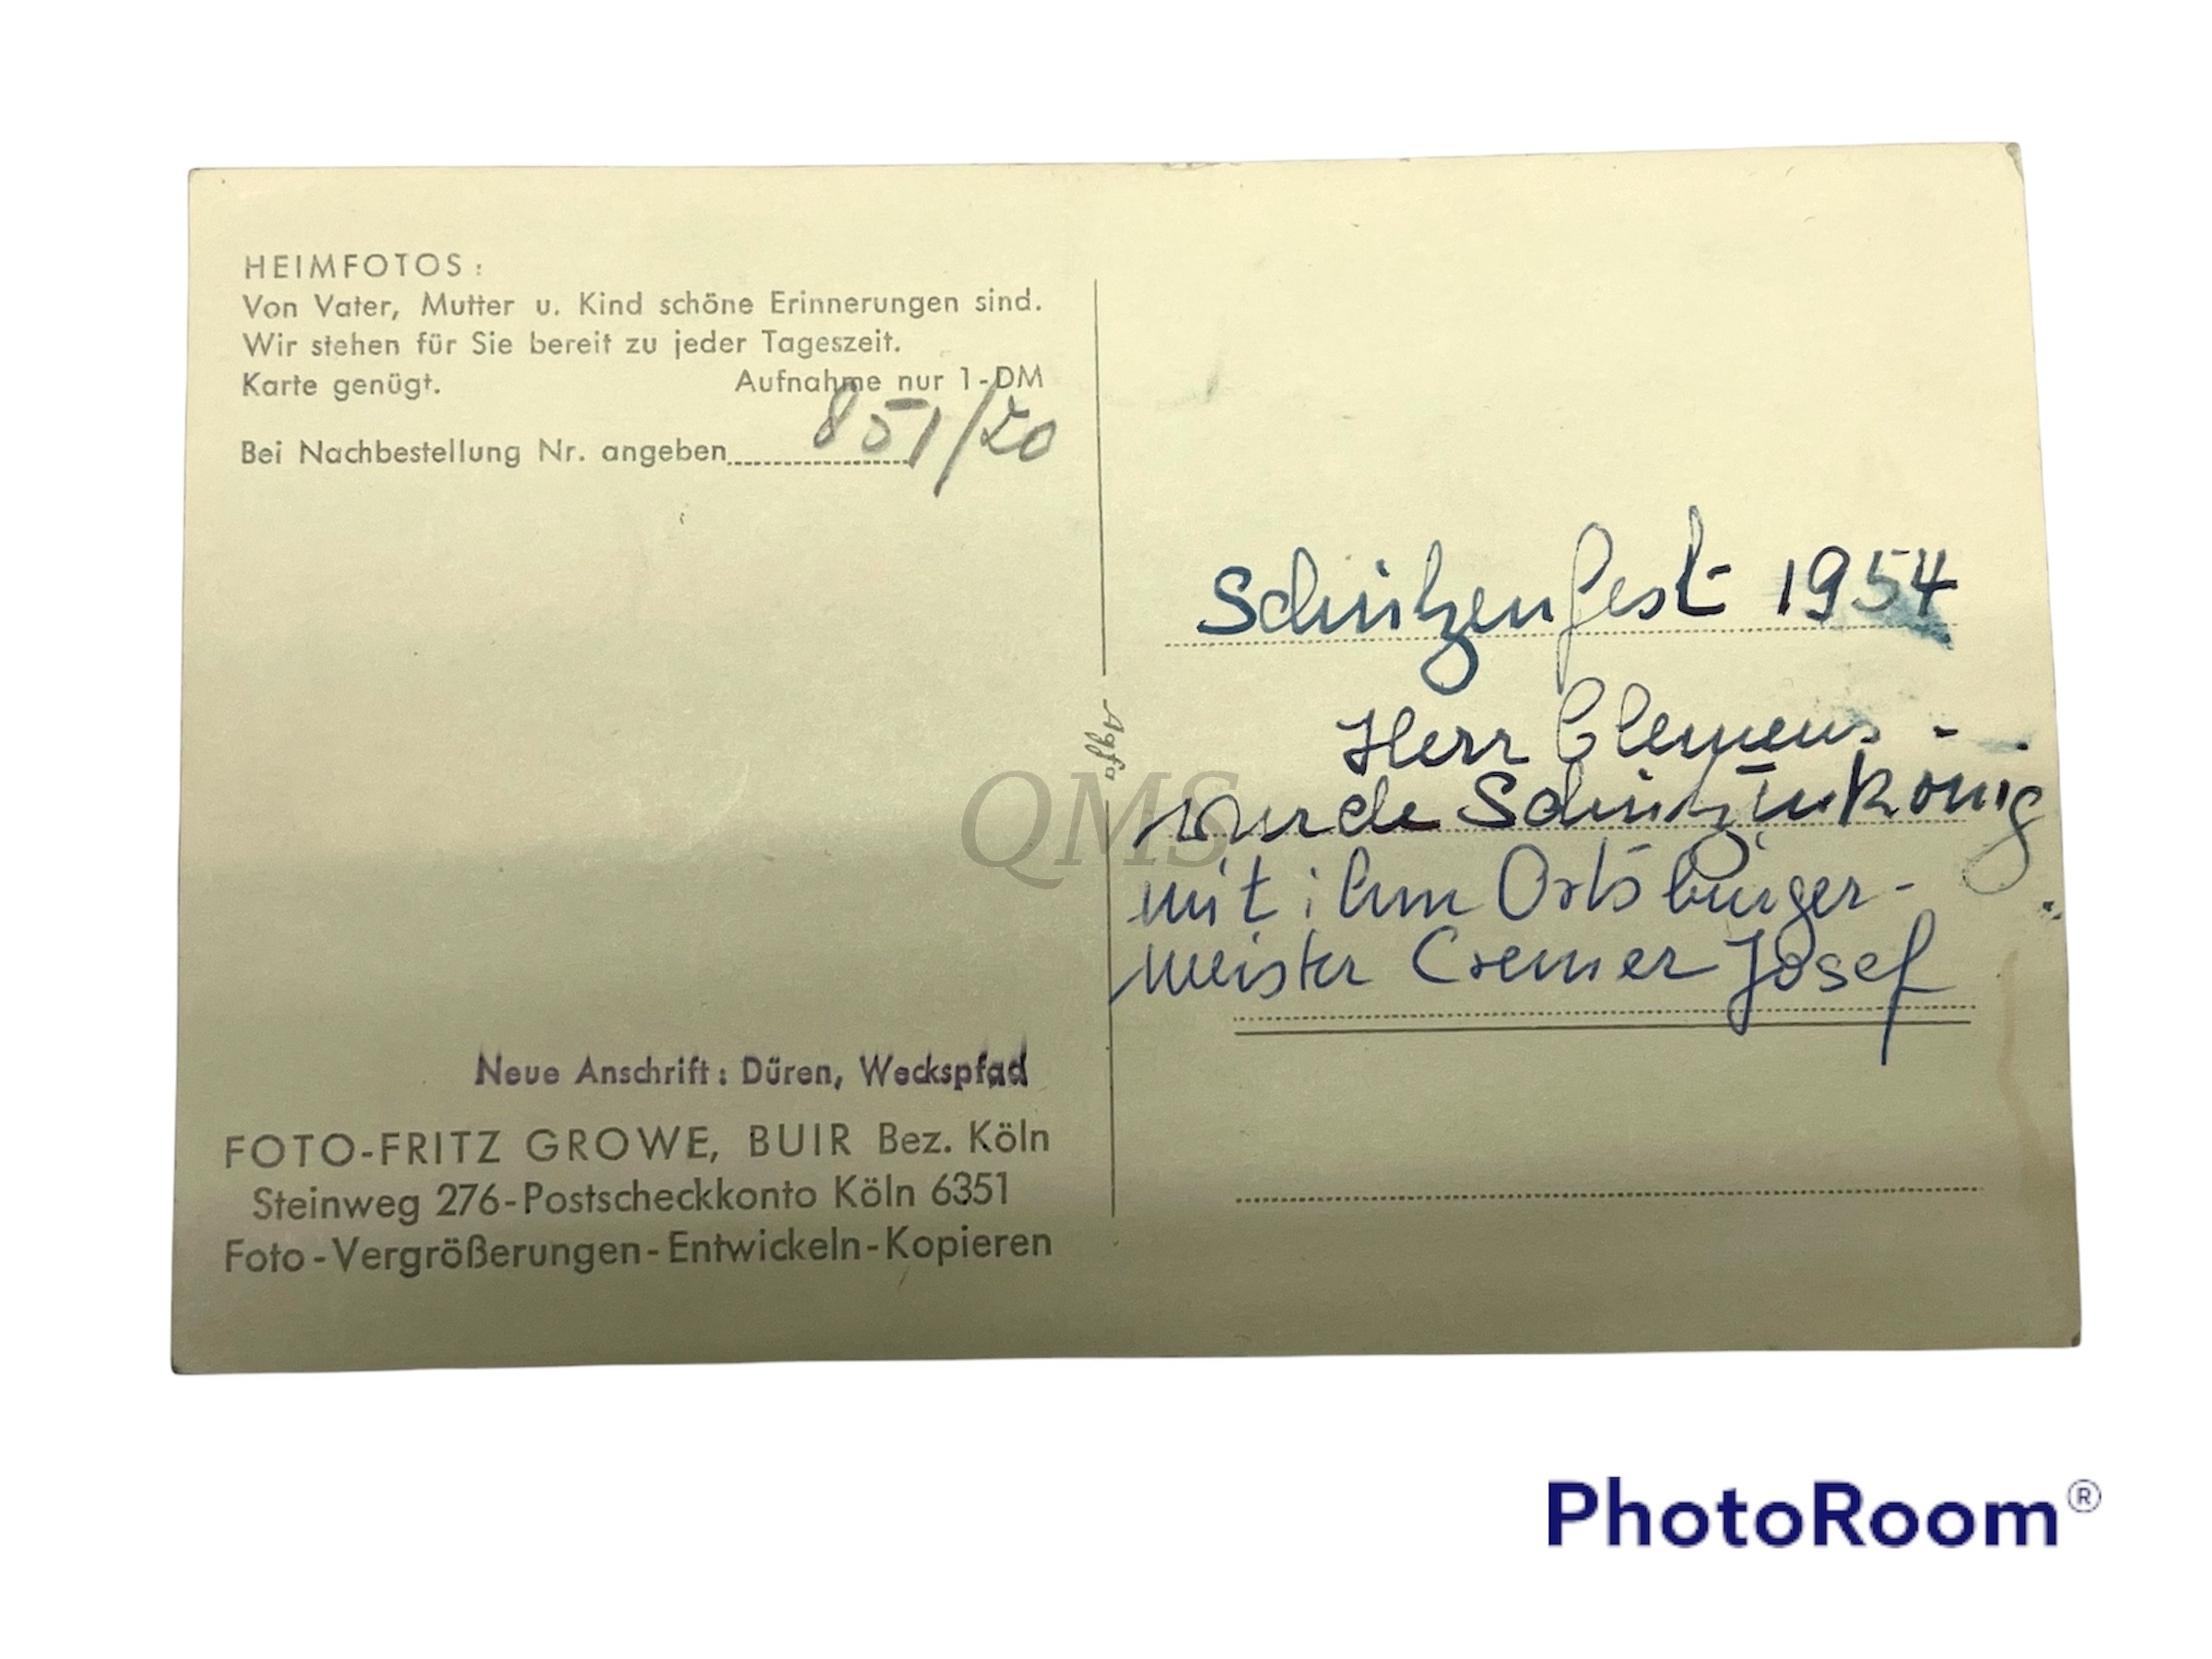 HEIMFOTOS:
Von Vater, Mutter u. Kind schöne Erinnerungen sind.
Wir stehen für Sie bereit zu jeder Tageszeit.
Karte genügt. Aufnahme nur 1-DM
Bei Nachbestellung Nr. angeben 851/20
Neue Anschrift: Düren, Weckspfad
FOTO-FRITZ GROWE, BUIR Bez. Köln
Steinweg 276-Postscheckkonto Köln 6351
Foto-Vergrößerungen-Entwickeln-Kopieren
Agfa
QMS
Schützenfest 1954
Herr Clemens -
wurde Schützenkönig
mit ihm Ortsbürger-
meister Cremer Josef
PhotoRoom®